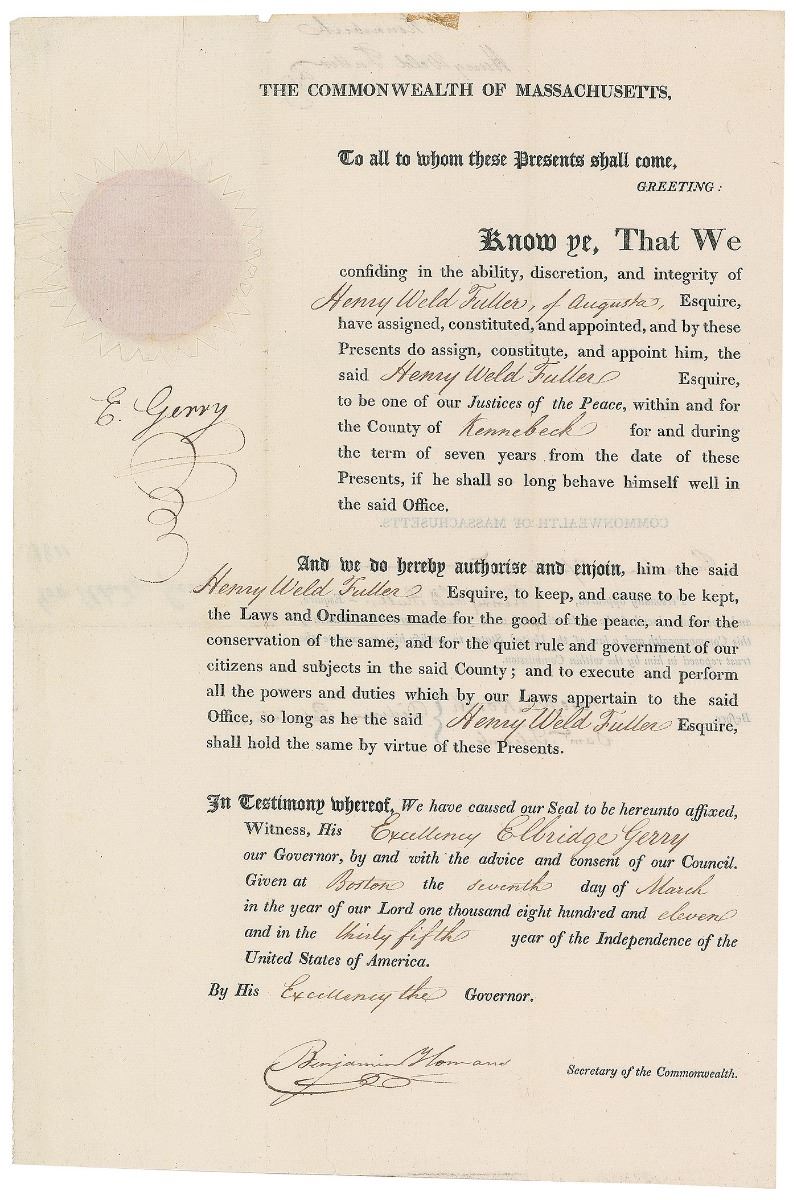 THE COMMONWEALTH OF MASSACHUSETTS,
To all to whom these Presents shall come,
GREETING:
Know ye, That We
confiding in the ability, discretion, and integrity of
Henry Weld Fuller, of Augusta, Esquire,
have assigned, constituted, and appointed, and by these
Presents do assign, constitute, and appoint him, the
said Henry Weld Fuller Esquire,
to be one of our Justices of the Peace, within and for
the County of Kennebeck for and during
the term of seven years from the date of these
Presents, if he shall so long behave himself well in
the said Office.
E. Gerry
And we do hereby authorise and enjoin, him the said
Henry Weld Fuller Esquire, to keep, and cause to be kept,
the Laws and Ordinances made for the good of the peace, and for the
conservation of the same, and for the quiet rule and government of our
citizens and subjects in the said County; and to execute and perform
all the powers and duties which by our Laws appertain to the said
Office, so long as he the said Henry Weld Fuller Esquire,
shall hold the same by virtue of these Presents.
In Testimony whereof, We have caused our Seal to be hereunto affixed,
Witness, His Excellency Elbridge Gerry
our Governor, by and with the advice and consent of our Council.
Given at Boston the seventh day of March
in the year of our Lord one thousand eight hundred and eleven
and in the thirty fifth year of the Independence of the
United States of America.
By His Excellency the Governor.
Benjamin Homans
Secretary of the Commonwealth.